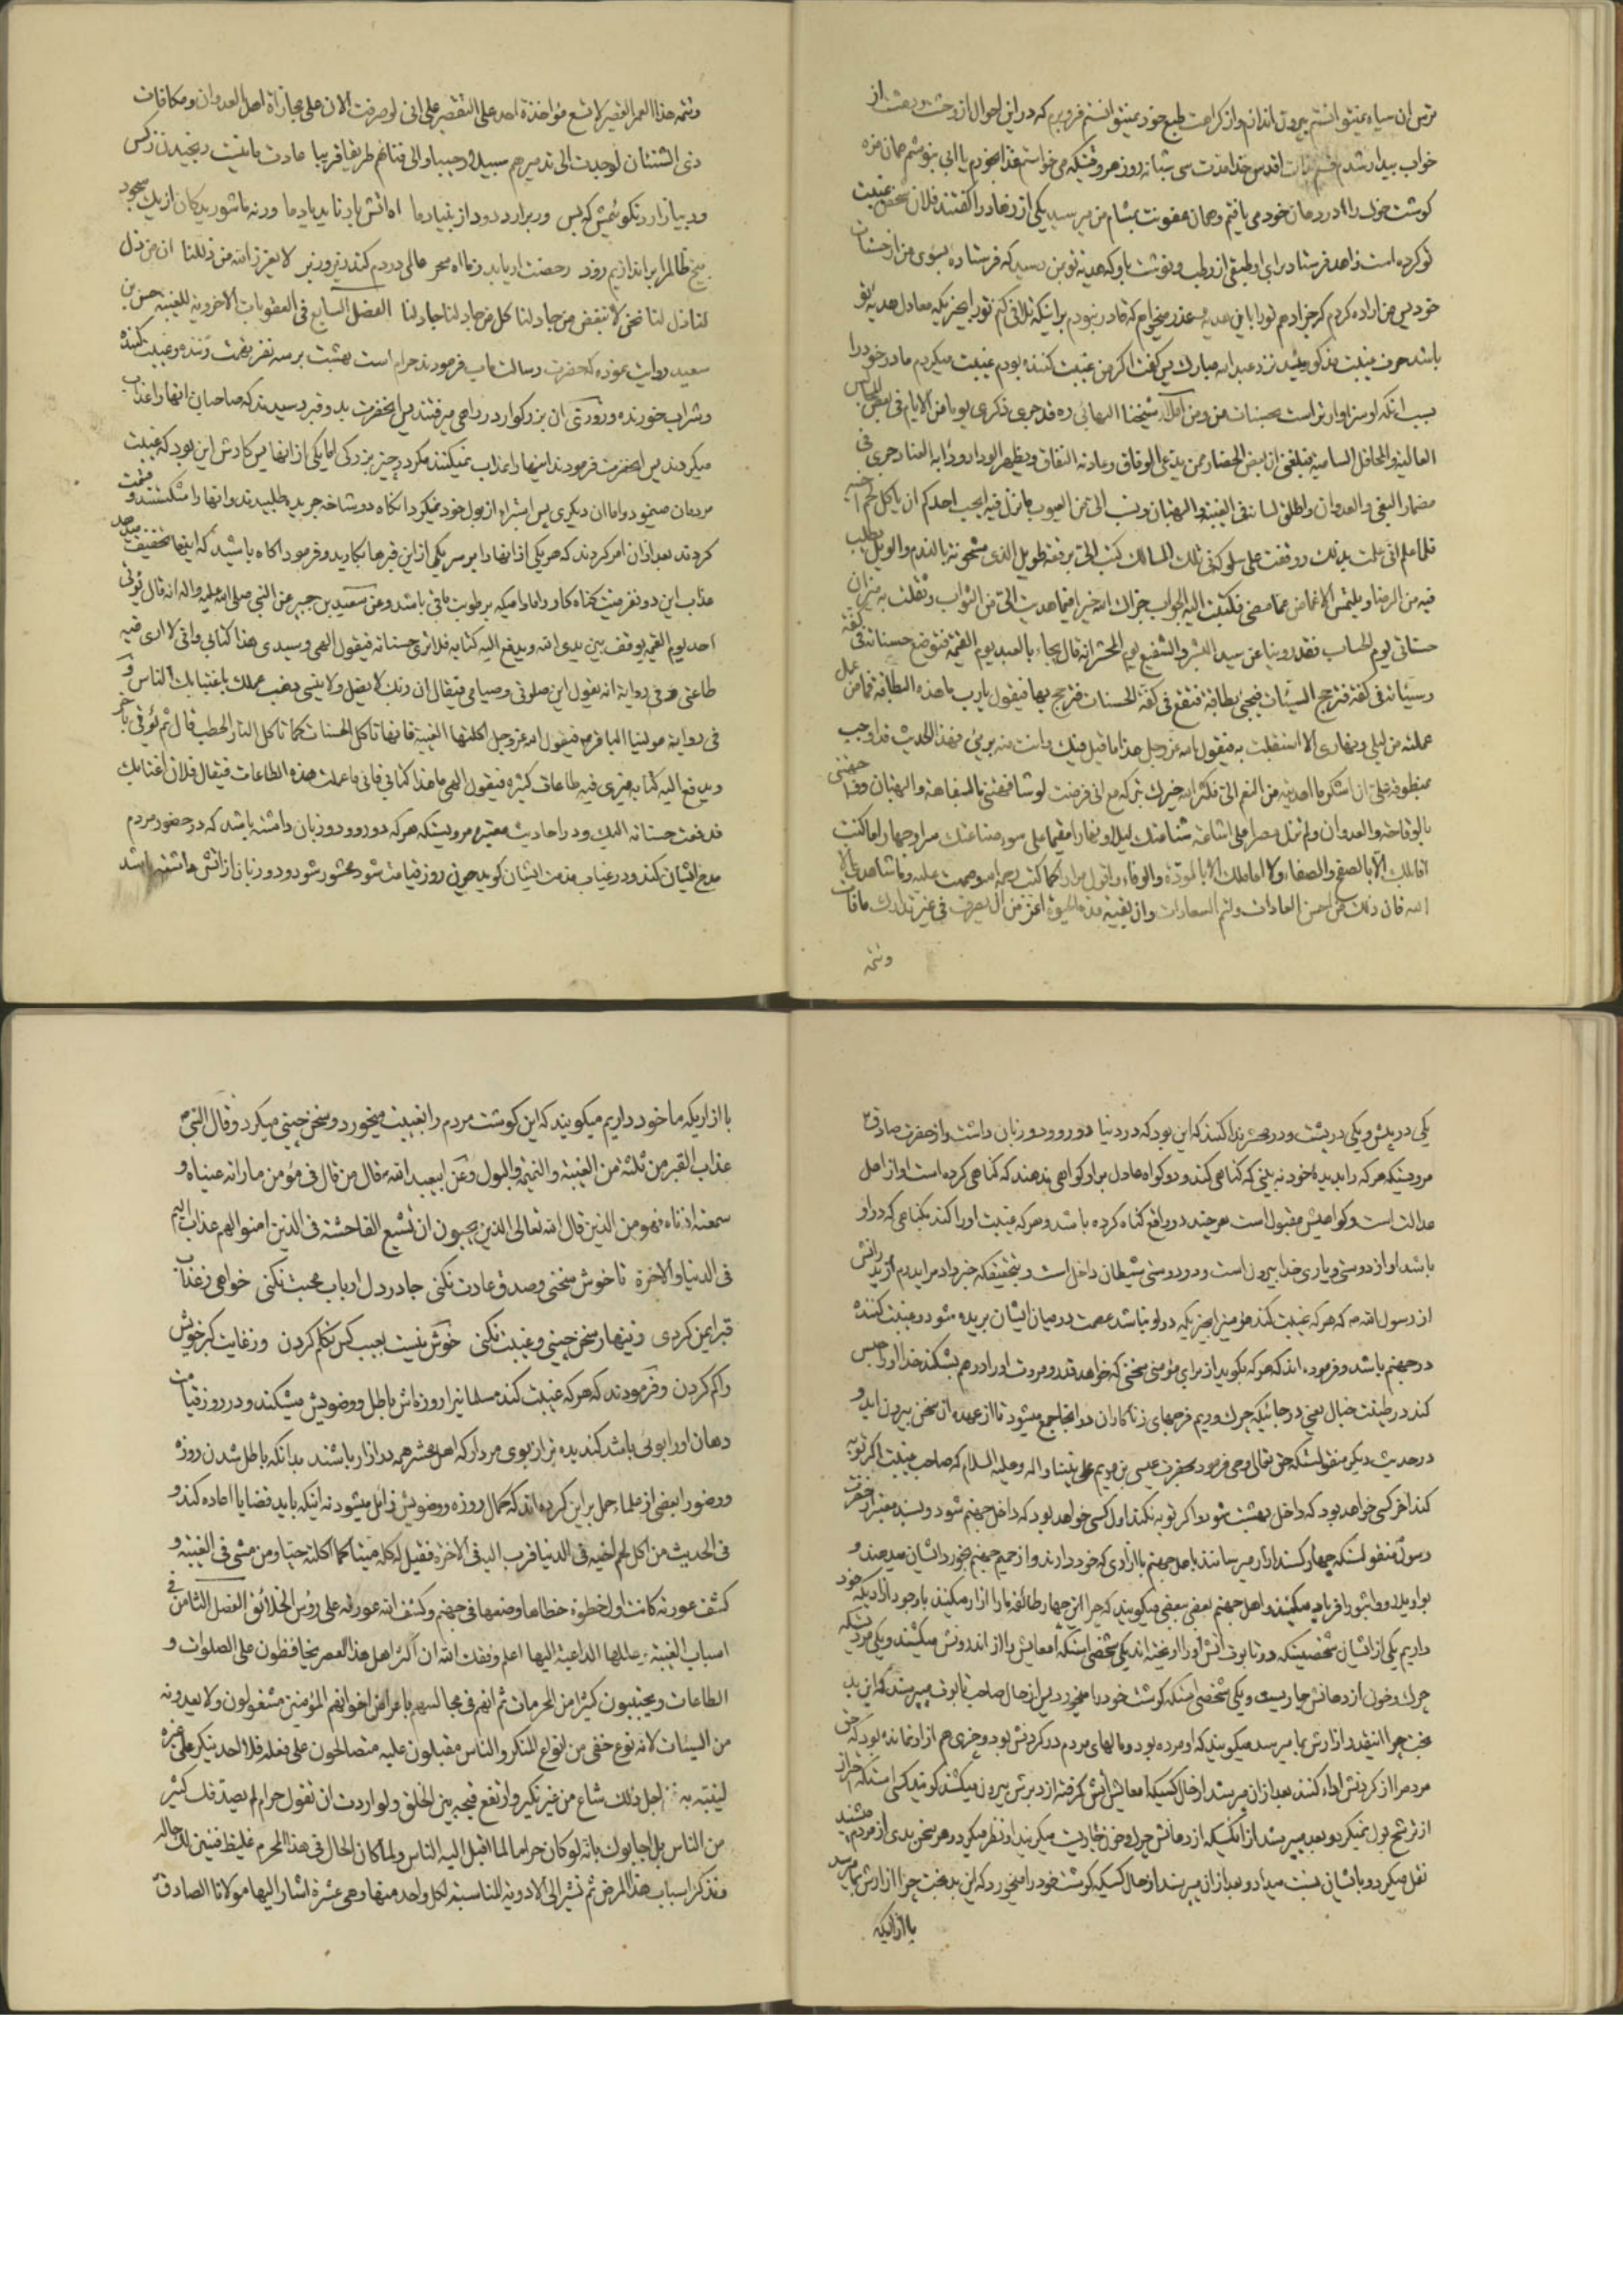 ترس آن سیاه نمیتوانستم بیرون اندازم و از کراهت طبع خود نمیتوانستم فرو برم که در این احوال از وحشت و دهشت از
خواب بیدار شدم قسم بذات اقدس خدا مدت سی شبانه روز هر وقتیکه می خواستم غذا بخورم یا ابی بنوشم همان مزه
کوشت خوک را در دهان خود می یافتم و همان عفونت بمشام من میرسید یکی از زهاد را کفتند فلان شخص غیبت
تو کرده است زاهد فرستاد برای او طبقی از رطب و نوشت باو که هدیه تو بمن رسید که فرستاده بسوی من از حسنات
خود پس من اراده کردم که جزا دهم تو را باین هدیه و عذر میخواهم که قادر نبودم بر اینکه تلافی کنم تو را بچیزیکه معادل هدیه تو
باشد حرف غیبت مذکور شد نزد عبد الله مبارک پس کفت اکر من غیبت کننده بودم غیبت میکردم مادر خود را
بسبب انکه او سزاوارتر است بحسنات من و من شیخنا البهائی ره قد جری ذکری یوما من الایام فی بعض المجالس
العالیة و المحافل السامیة فبلغنی ان بعض الحضار ممن یدعی الوفاق و عادته النفاق و یظهر الوداد و دابه العناد جری فی
مضمار البغی و العدوان و اطلق لسانه فی الغیبة و البهتان و نسب الی من العیوب ما نزل فیه ایحب احدکم ان یاکل لحم اخیه
فلما علم انی علمت بذلک و وقفت علی سلوکه فی تلک المسالک کتب الی برقعة طویل الذی مشحونة بالندم و الویل یطلب
فیه من الرضا و یلتمس الاغماض عما مضی فکتبت الیه الجواب جزاک الله خیرا فیما اهدیت الی من الثواب و ثقلت به میزان
حسناتی یوم الحساب فقد روینا عن سید البشر و الشفیع یوم المحشر انه قال یجاء بالعبد یوم القیمة فتوضع حسناته فی کفة
و سیئاته فی کفة فترجح السیئات فیجیء بطاقة فتقع فی کفة الحسنات فترجح بها فیقول یا رب ما هذه البطاقة فما من عمل
عملته من لیلی و نهاری الا استقبلت به فیقول الله عز و جل هذا ما قیل فیک و انت منه بریء فهذا الحدیث قد اوجب
بمنطوقه علی ان اشکر ما اهدیته من النعم الی فکثر الله خیرک مع انی فرضت لو شافهتنی بالسفاهة و البهتان و وجهتنی
بالوقاحة و العدوان و لم تزل مصرا علی اشاعة شناعتک لیلا و نهارا مقیما علی سوء صناعتک سرا و جهارا ما کنت
اقابلک الا بالصفح و الصفاء و لا اعاملک الا بالمودة و الوفاء
فان ذلک من احسن العادات و اتم السعادات و ان بقیة مدة الحیوة اعز من ان تصرف فی غیر تدارک ما فات
و تتمه
و تتمة هذا العمر القصیر لا تسع مؤاخذة احد علی التقصیر علی انی لو صرفت الان علی مجازاة اهل العدوان و مکافات
ذی الشنئان لوجدت الی تدمیرهم سبیلا رحیبا و الی فنائهم طریقا قریبا عادت ما نیست رنجیدن ز کس
ور بیازارد نکوئیمش که بس ور برارد دود از بنیاد ما اه اتش بار ناید یاد ما ورنه ما شوریدکان از یک سجود
بیخ ظالم را براندازیم زود رخصت ار یابد ز ما اه سحر عالمی در دم کند زیر و زبر لا یعزز الله من ذللنا ان من ذل
لنا ذل لنا نحن لا ننقض من جاد لنا کل من جاد لنا جاد لنا الفصل السابع فی العقوبات الاخرویة للغیبة حسن بن
سعید روایت نموده که حضرت رسالت ماب فرمودند حرام است بهشت بر سه نفر بتهمت زننده و غیبت کننده
و شراب خورنده و روزی ان بزرکوار در راهی میرفتند پس انحضرت بدو قبر رسیدند که صاحبان انها را عذاب
میکردند پس انحضرت فرمودند اینها را عذاب نمیکنند مکر در چیز بزرکی اما یکی از انها پس کارش این بود که غیبت
مردمان مینمود و اما ان دیکری پس استبراء از بول خود نمیکرد انکاه دو شاخه جریده طلبیدند و انها را شکستند و قسمت
کردند بعد از ان امر کردند که هر یکی از انها را بر سر یکی از این قبرها بکارید و فرمود اکاه باشید که اینها تخفیف میدهد
عذاب این دو نفر میت کناه کار را مادامیکه برطوبت باقی باشد و عن سعید بن جبیر عن النبی صلی الله علیه و اله انه قال یؤتی
احد یوم القیمة یوقف بین یدی الله و یدفع الیه کتابه فلا یری حسناته فیقول الهی و سیدی هذا کتابی و انی لا اری فیه
طاعتی و فی روایة انه یقول این صلوتی و صیامی فیقال ان ربک لا یضل و لا ینسی ذهب عملک باغتیابک الناس و
فی روایة مولینا الباقر فیقول الله عز و جل اکلتها الغیبة فانها تاکل الحسنات کما تاکل النار الحطب قال ثم یؤتی باخر
و یدفع الیه کتابه فیری فیه طاعات کثیره فیقول الهی ما هذا کتابی فانی ما عملت هذه الطاعات فیقال فلان اغتابک
فدفعت حسناته الیک و در احادیث معتبره مرویستکه هر که دو رو و دو زبان داشته باشد که در حضور مردم
مدح ایشان کند و در غیاب مذمت ایشان کوید چون روز قیامت شود محشور شود و دو زبان از اتش داشته باشد
یکی در پیش و یکی در پشت و در محشر ندا کنند که این بود که در دنیا دو رو و دو زبان داشت و از حضرت صادق
مرویستکه هر که را بدیده خود نه بینی که کناهی کند و دو کواه عادل بر او کواهی ندهند که کناهی کرده است او از اهل
عدالت است و کواهیش مقبول است هر چند در واقع کناه کرده باشد و هر که غیبت او را کند بکناهی که در او
باشد او از دوستی و یاری خدا بیرون است و در دوستی شیطان داخل است و بتحقیقکه خبر داد مرا پدرم از پدرانش
از رسول الله که هر که غیبت کند مؤمنیرا بچیزیکه در او نباشد عصمت در میان ایشان بریده شود و غیبت کننده
در جهنم باشد و فرموده اند که هر که بکوید از برای مؤمنی سخنی که خواهد قدر و مروت او را درهم بشکند خدا او را حبس
کند در طینت خبال یعنی در جائیکه چرک و ریم فرجهای زنا کاران در انجا جمع میشود تا از عهده ان سخن بیرون اید و
در حدیث دیکر منقولستکه حق تعالی وحی فرمود بحضرت عیسی بن مریم علی نبینا و اله و علیه السلام که صاحب غیبت اکر توبه
کند اخر کسی خواهد بود که داخل بهشت شود و اکر توبه نکند اول کسی خواهد بود که داخل جهنم شود و بسند معتبر از حضرت
رسول منقولستکه چهار کسند ازار میرسانند باهل جهنم با ازاری که خود دارند و از حمیم جهنم بخورد ایشان میدهند و
بواویلا و واثبورا فریاد میکنند و اهل جهنم بعضی ببعضی میکویند که چرا این چهار طائفه ما را ازار میکنند با وجود ازاریکه خود
داریم یکی از ایشان شخصیستکه در تابوت اتش او را اویخته اند یکی شخصی استکه امعایش را از اندرونش میکشند و یکی مردیستکه
چرک و خون از دهانش جاریست و یکی شخصی استکه کوشت خود را میخورد پس از حال صاحب تابوت میپرسند که این بد
بخت چرا اینقدر ازارش بما میرسد میکویند که او مرده بود و مالهای مردم در کردنش بود و چیزی هم از او نمانده بود که حق
مردم را از کردنش اداء کنند بعد از ان پرسند از حال کسیکه امعایش را کرفته از دبرش بیرون میکشند کویند کسی استکه احتراز
از ترشح بول نمیکرد و بعد میپرسند از انکسیکه از دهانش چرک و خون جاریست میکویند او نظر میکرد و هر سخن بدی از مردم میشنید
نقل میکرد و بایشان نسبت میداد و بعد از ان میپرسند از حال کسیکه کوشت خود را میخورد که این بدبخت چرا ازارش بما میرسد
با ازاریکه
با ازاریکه ما خود داریم میکویند که این کوشت مردم را بغیبت میخورد و سخن چینی میکرد و قال النبی
عذاب القبر من ثلثة من الغیبة و النمیمة و البول و عن ابیعبد الله قال من قال فی مؤمن ما راته عیناه و
سمعته اذناه فهو من الذین قال الله تعالی الذین یحبون ان تشیع الفاحشة فی الذین امنوا لهم عذاب الیم
فی الدنیا و الاخرة تا خوش سخنی و صدق عادت نکنی جا در دل ارباب محبت نکنی خواهی ز عذاب
قبر ایمن کردی زینهار سخن چینی و غیبت نکنی خوش نیست بعیب کس تکلم کردن وز غایت کبر خویش
را کم کردن و فرمودند که هر که غیبت کند مسلمانیرا روزه اش باطل و وضویش میشکند و در روز قیامت
دهان او را بوئی باشد کندیده تر از بوی مردار که اهل محشر همه در ازار باشند بدانکه باطل شدن روزه
و وضو را بعضی از علماء حمل بر این کرده اند که کمال روزه و وضویش زائل میشود نه اینکه باید قضا یا اعاده کند و
فی الحدیث من اکل لحم اخیه فی الدنیا قرب الیه فی الاخرة فقیل له کله میتا کما اکلته حیا و من مشی فی الغیبة و
کشف عورته کانت اول خطوة خطاها وضعها فی جهنم و کشف الله عورته علی رؤس الخلائق الفصل الثامن فی
اسباب الغیبة و عللها الداعیة الیها اعلم وفقک الله ان اکثر اهل هذا العصر یحافظون علی الصلوات و
الطاعات و یجتنبون کثیرا من المحرمات ثم انهم فی مجالسهم باعراض اخوانهم المؤمنین مشغولون و لا یعدونه
من السیئات لانه نوع خفی من انواع المنکر و الناس مقبلون علیه متصالحون علی فعله فلا احد ینکر علی غیره
لغیبته به فلاجل ذلک شاع من غیر نکیر و ارتفع قبحه بین الخلق و لو اردت ان تقول حرام لم یصدقک کثیر
من الناس بل اجابوک بانه لو کان حراما لما اقبل الیه الناس و لما کان الحال فی هذا المحرم غلیظ فنبین لک حاله
و نذکر اسباب هذا المرض ثم نشیر الی الادویة المناسبة لکل واحد منها و هی عشرة اشار الیها مولانا الصادق